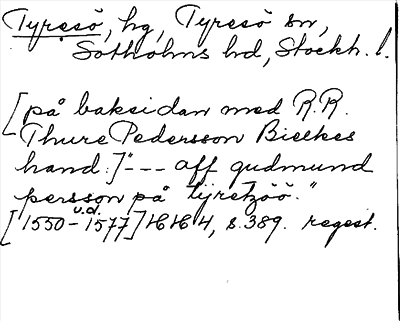 Tyresö, hg, Tyresö sn,
Sotholms hd, Stockh. l.
[på baksidan med R.R.
Thure Pedersson Bielkes
hand:]"--- aff gudmund
persson på tyretzöö."
u.d.
[1550-1577] HH 4, s.389. regest.